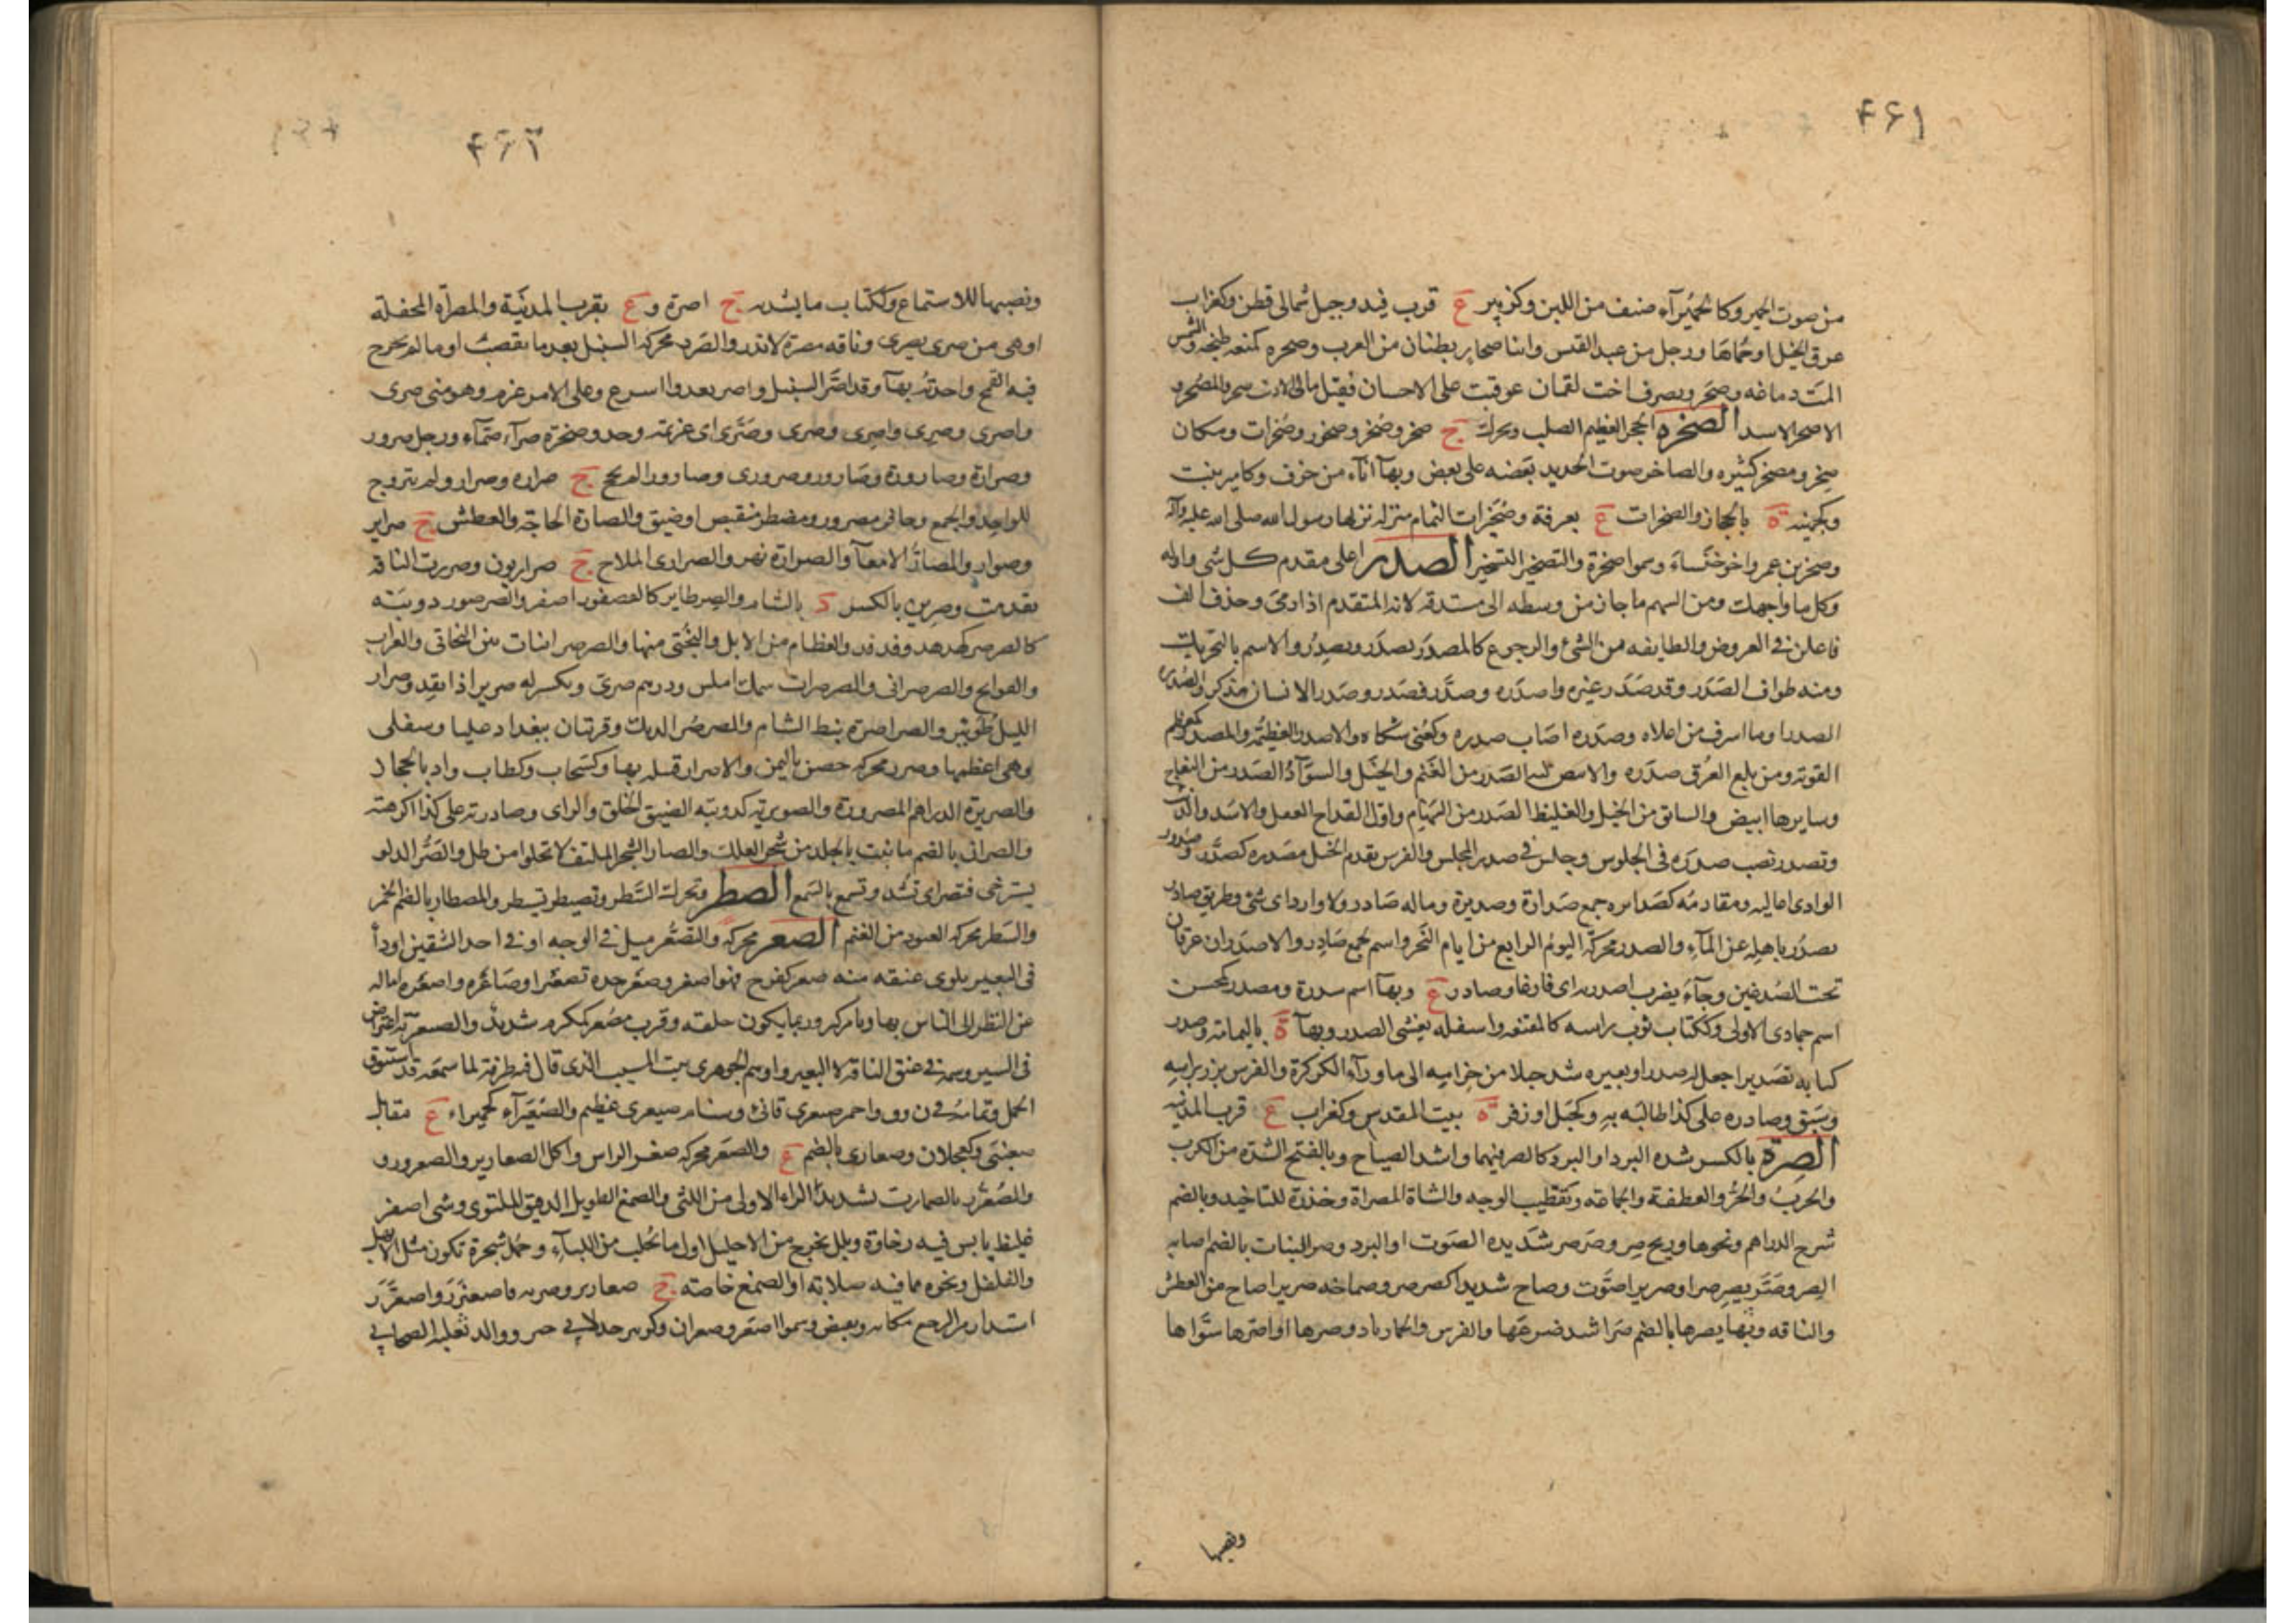 ۴۶۱
من صوت الحمير وكالحُمَيْرَآء صنف من اللبن وكزبير ع قرب فيد وجبل شمالى قطن وكغراب
عرق الخيل او حُمّاها ورجل من عبد القيس وابنا صحار بطنان من العرب وصحره كمنعه طبخه والشمس
دماغه وصحر ويصرف اخت لقمان عوقبت على الاحسان فقيل مالى
الاصحر الاسد الصخره الحجر العظيم الصلب ويحرك ج صخر وصُخر وصخور وصُخرات ومكان
صخر ومصخر كثيره والصاخر صوت الحديد بعضه على بعض وبهآ انآء من خزف وكامير نبت
وكجهينه ة بالحجاز والصخرات ع بعرفة وصُخَيرات الثمام منزله نزلها رسول الله صلى الله عليه وآله
وصخر بن عمرو اخو خنساء وسموا صخرة والتصخير التسخير الصدر اعلى مقدم كل شى واوله
وكل ما واجهك ومن السهم ما جاز من وسطه الى مستدقه لانه المتقدم اذا رمى وحذف الف
فاعلن فى العروض والطايفه من الشئ والرجوع كالمصدر يصدَر ويصدِرُ والاسم بالتحريك
ومنه طواف الصَدَر وقد صَدَر غيره واصدره وصدَّر فصَدر وصَدر الانسان مذكر والصُدره
الصدر او ما اشرف من اعلاه وصدَره اصاب صدره وكعُنى شكاه والاصدر العظيمُه والمصدر كمعظم
القويه ومن بلغ العرق صدَره والابيض لبة الصَدر من الغَنم والخَيل والسوَآدُ الصَدر من النعاج
وسايرها ابيض والسابق من الخيل والغليظ الصَدر من السهام واوّل القداح الغفل والاسَد والذئب
وتصدر نصب صدرَه فى الجلوس وجلس فى صدر المجلس والفرس تقدم الخيل بصدره كصدَّر وصُدور
الوادى اعاليه ومقادمُه كصَدايره جمع صَدارة وصديرة وماله صَادر ولا وارد اى شئ وطريق صادر
يصدُر باهلِه عن المآءِ والصدر محركة اليومُ الرابع من ايام النَحر واسم لجمع صَادِر والاصدَران عرقان
تحت الصُدغين وجآءَ يضرب اصدريه اى فارغا وصادر ع وبهآ اسم سدرة ومصدر كمحسن
اسم جمادى الاولى وككتاب ثوب راسه كالمقنعه واسفله يغشى الصدر وبهآ ة باليمامة وصدر
كتابه تصديرا جعل له صدرا وبعيره شد حبلا من حزامه الى ماورآء الكركرة والفرس برز براسه
وسَبق وصادره على كذا طالبَه به وكجَبل او زفر ة ببيت المقدس وكغراب ع قرب المدينه
الصِرّة بالكسر شده البرد او البرد كالصر فيهما واشد الصياح وبالفتح الشدّة من الكرب
والحربُ والحَرُّ والعطفة والجماعة وتقطيب الوجه والشاة المصراة وخذرة للتاخيذ وبالضم
شرج الدراهم ونحوها وريح صِر وصَرصر شَديده الصَوت او البرد وصر النبات بالضم اصابه
الصر وصَرَّ يصِر صرا وصريرا صَوّت وصاح شديدا كصرصر وصماخه صريرا صاح من العطش
والناقه وبها يصرها بالضم صَرا شد ضرعَها والفرس والحمار باذنه وصرها او اصَرها سَوّاها
ونصبها
۴۶۲
ونصبها للاستماع وككتاب ما يشد به ج اصرة و ع بقرب المدينة والمصرّاه المحفلة
او هى من صرى يصرى وناقه مصرّة لا تدر والصَرر محركه السنبل بعد ما يقصب او ما لم يخرج
فيه القمح واحدتُه بهآ وقد اصَرَّ السنبل واصر يعدوا اسرع وعلى الامر عزم وهو منى صرى
واصرى وصِرى واصِرى وصُرى وصُرَّى اى عزيمه وجد وصخرة صرآء صمّآء ورجل صرور
وصرارة وصارورة وصَارور وصرورى وصارورا لم يحج ج صراره وصرار ولم يتزوج
للواحد والجمع وحافر مصرور ومصطر منقبض او ضيق والصارّة الحاجة والعطش ج صراير
وصوار والمصارُّ الامعآ والصرارة نهر والصرارى الملاح ج صراريون وصررت الناقه
تقدمت وصرين بالكسر د بالشام والصِر طاير كالعصفور اصفر والصرصور دويبّه
كالصرصر كهدهد وفدفد والعظام من الابل والبُختى منها والصرصرانيات بين البخاتى والعراب
والفوالج والصرصرانى والصرصران سمك املس ودرهم صرى ويكسر له صرير اذا نقد وصرار
الليل طُوَيئر والصراصرة نبط الشام والصرصر الديك وقريتان ببغداد عليا وسفلى
وهى اعظمها وصرر محركه حصن باليمن والاصرار قبيله بها وكسَحاب وكطاب واد بالحجاز
والصريرة الدراهم المصرورة والصويرية كدويبّه الضيق الخلق والراى وصادرته على كذا اكرهته
والصران بالضم ما نبت بالجلد من شجر العلك والصار الشجر الملتف لا تخلوا من ظل والصَرُّ الدلو
يسترخى فتصر اى تشد وتسمع بالسمع الصطر وتحرك السَطر وتصيطر تسيطر والمصطار بالضم الخمر
والسَطر محركه العتود من الغنم الصعر محركة والتصَعُّر ميل فى الوجه او فى احد الشقين او دآ
فى البعير يلوى عنقه منه صعر كفرح فهو اصعر وصعّر خده تصعيرا وصَاعَره واصعَره اماله
عن النظر الى الناس تهاونا من كبر وربما يكون خلقه وقرب مصعر كمكرم شديد والصيعرية اعتراض
فى السير وسمة فى عنق الناقه لا البعير واوهم الجوهرى بيت المسيب الذى قال فيه طرفة لما سمعه قد استنوق
الجمل واحمر صيعرى قانئ وسنام صيعرى عظيم والصُعَيرَآء كحميراء ع مقابل
صعنبَى وكعجلان وصعارى بالضم ع والصَعَر محركه صغر الراس واكل الصعارير والصعرورو
والصُعْرُر بالصمارت تشديد الراء الاولى من اللثى والصمغ الطويل الدقيق الملتوى وشى اصفر
غليظ يابس فيه رخاوة وبلل يخرج من الاحليل اول ما تُحلب من اللباء وحَمل شجرة تكون مثل الابهل
والفلفل ونحوه مما فيه صلابة او الصمغ خاصه ج صعارير وصعرره فاصعنرَر واصعَرَّر
استدار من الوجع مكانه وتقبض وسموا اصعر وصعران وكزبير جد لابى حسر ووالد ثعلبة الصحابى